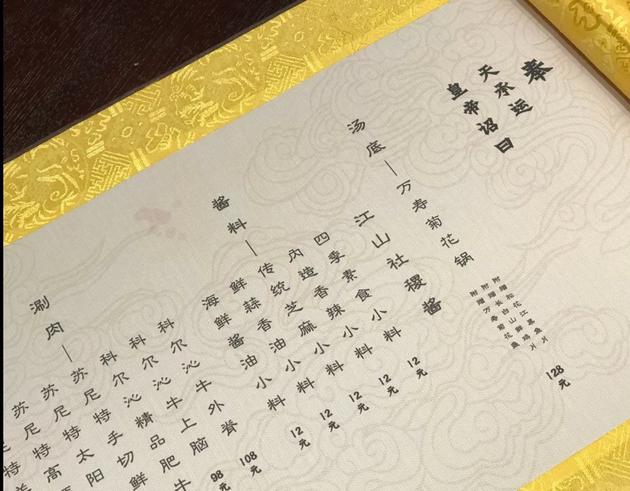 奉
天承运
皇帝诏曰
汤底—万寿菊花锅
128元
酱料—江山社稷酱
四季素食小料 12元
内造香辣小料 12元
传统芝麻小料 12元
鲜蒜香油小料 12元
海鲜酱油小料 12元
涮肉—科尔沁牛外脊 108元
科尔沁牛上脑 98元
科尔沁精品肥牛
苏尼特手切鲜
苏尼特太阳
苏尼特高